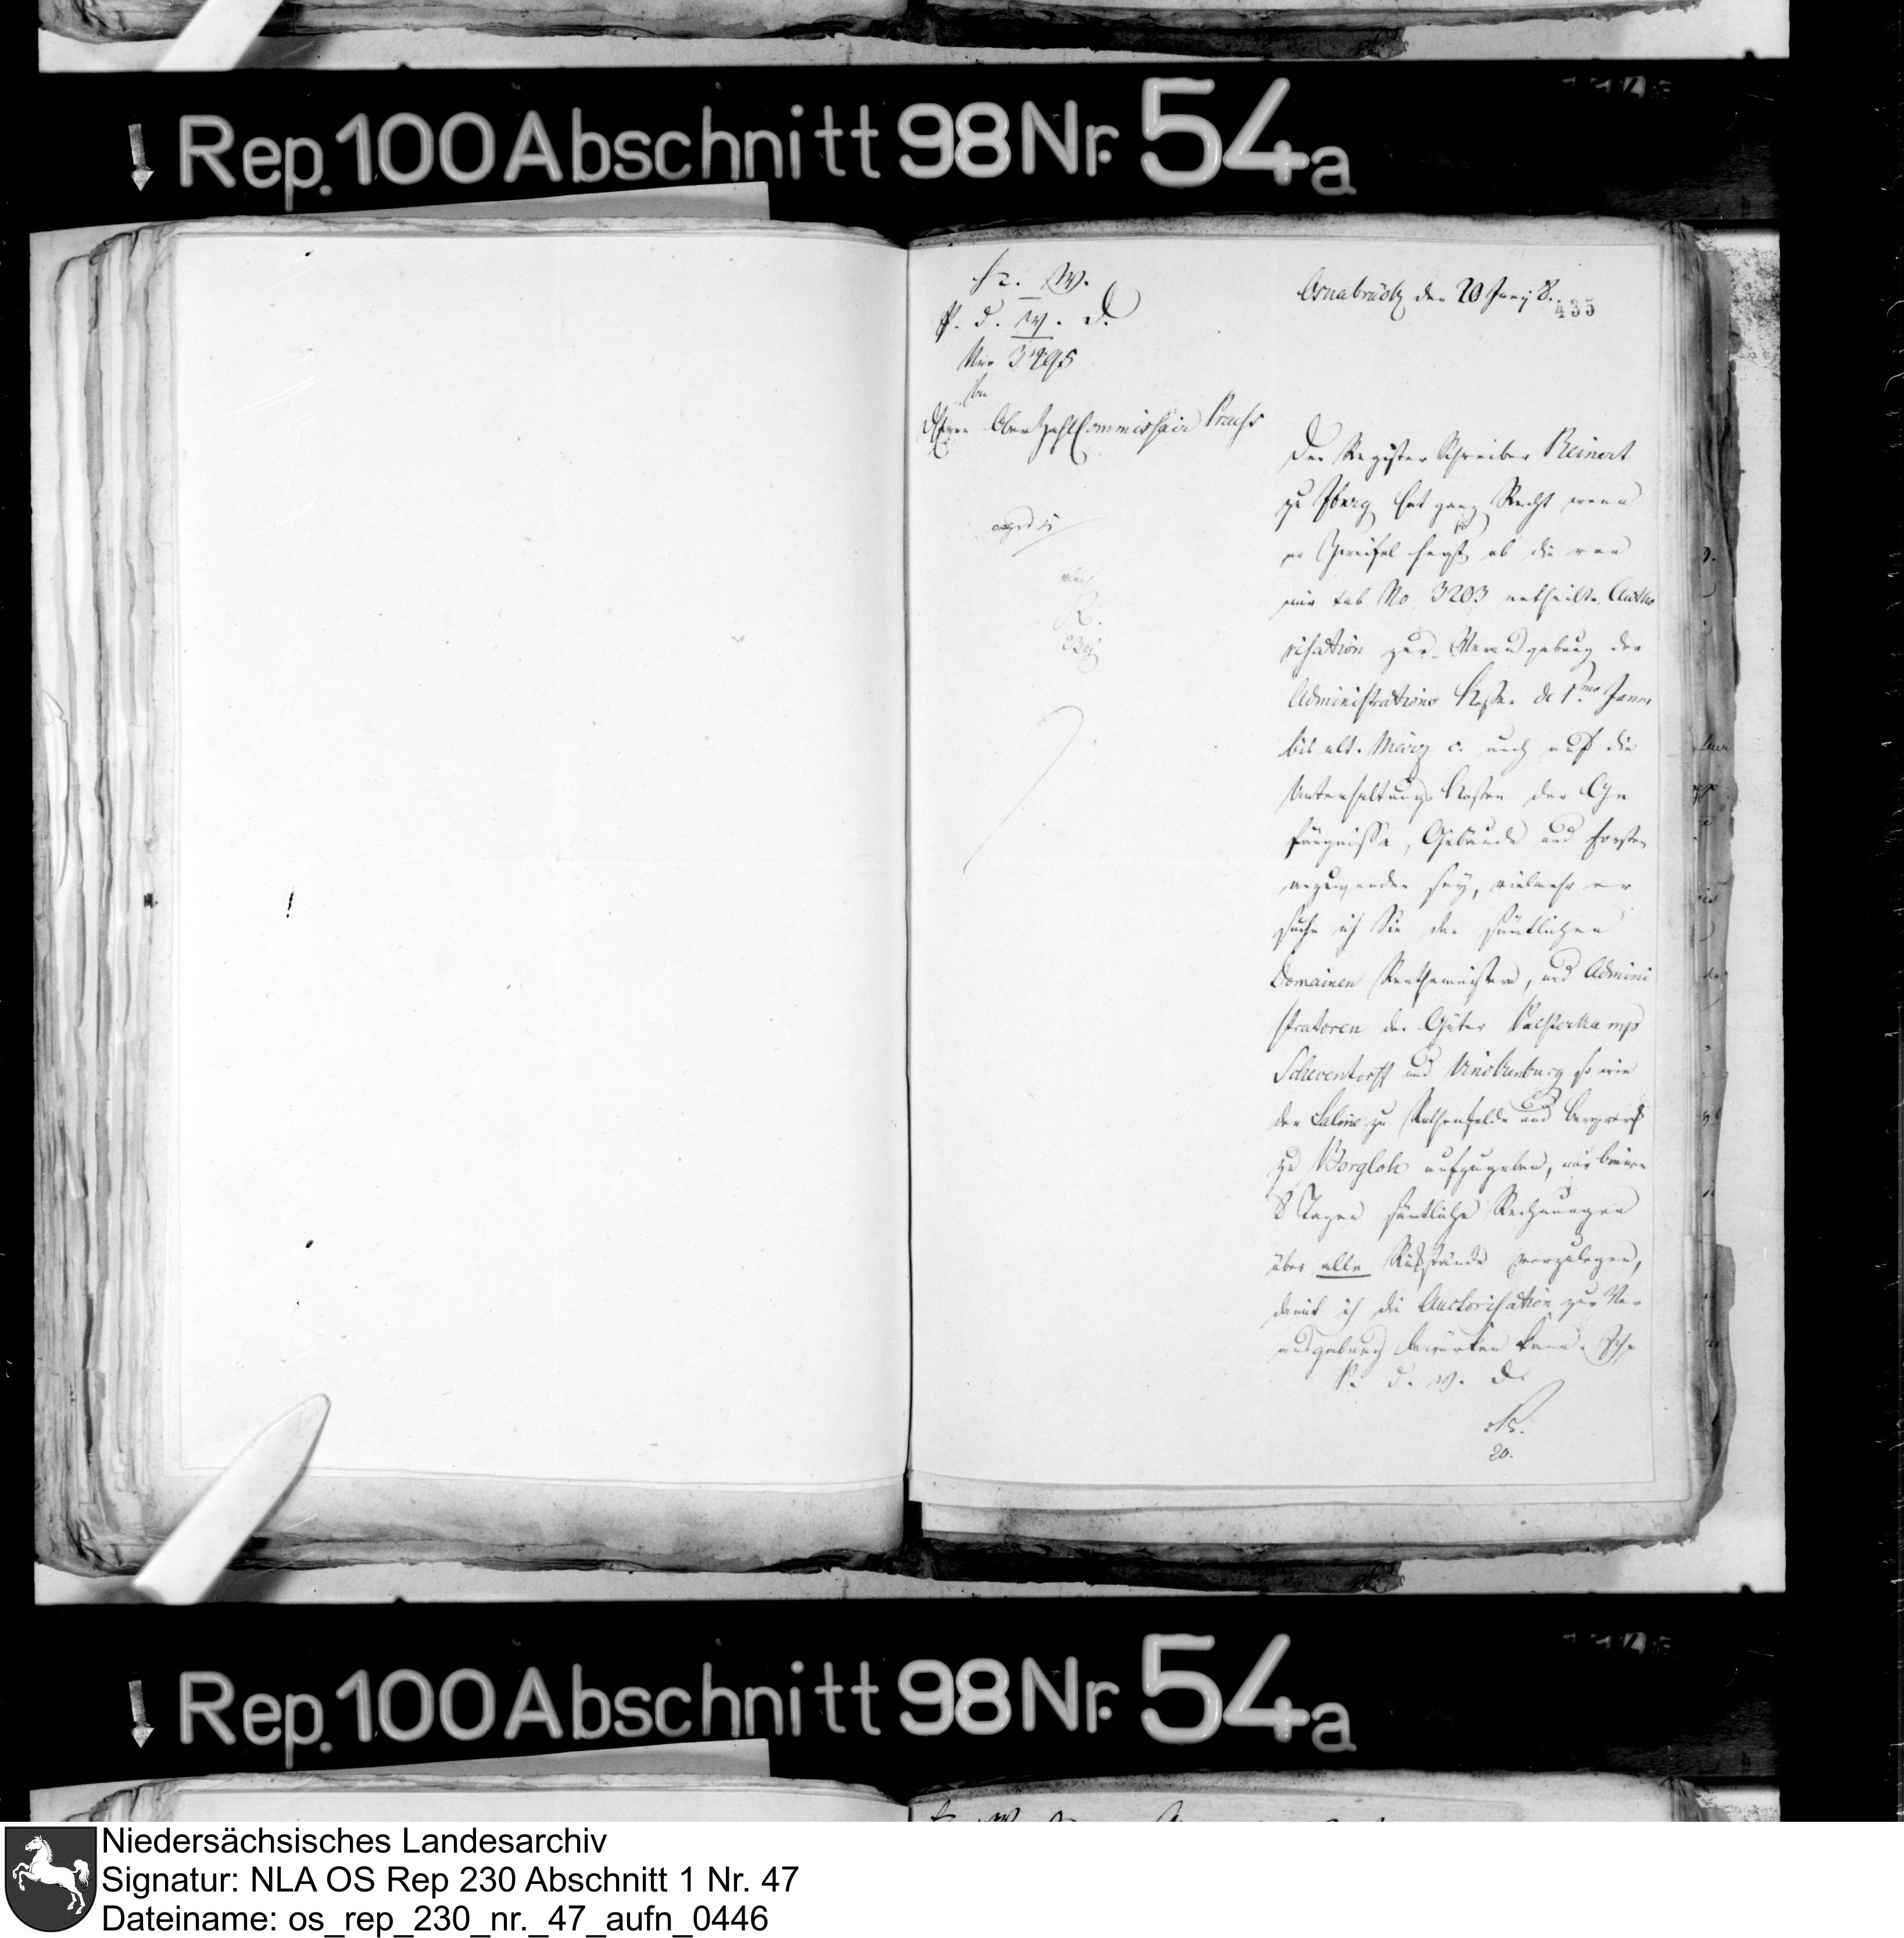 Rep. 100 Abschnitt 98 Nr. 54a
Fr. W.
P. d. W. D.
Nro 3495
An
Herrn Ober Zahl Commissair
expd
Osnabrück den 20 Juny 8.
435
Der Register Schreiber Reinert
zu Iburg hat ganz Recht wenn
er Zweifel hegt, ob die von
mir sub No 3203 ertheilte Autho
risation zur Verausgebung der
Administrations Kosten de 1mo Januar
bis ult. März c. auch auf die
Unterhaltungs Kosten der Ge
fängnisse, Gebäude und Forsten
anzuwenden sey, vielmehr er
suche ich Sie den sämtlichen
Domainen Rentmeistern, und Admini
stratoren der Güter Palsterkamp
Scheventorff und Vinckenburg so wie
der Saline zu Rothenfelde und Bergwerk
zu Borgloh aufzugeben, mir binnen
8 Tagen sämtliche Rechnungen
über alle Rückstände vorzulegen,
damit ich die Auctorisation zur Ver
ausgabung bewürken kann.
P. d. W. D.
20.
Rep. 100 Abschnitt 98 Nr. 54a
Niedersächsisches Landesarchiv
Signatur: NLA OS Rep 230 Abschnitt 1 Nr. 47
Dateiname: os_rep_230_nr._47_aufn_0446